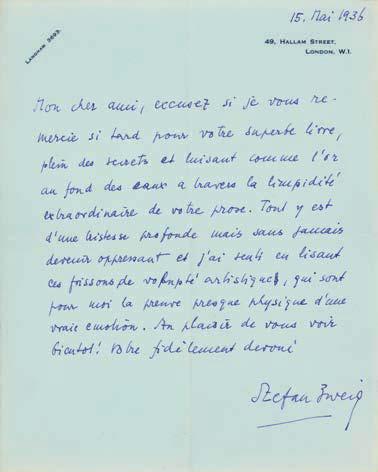 15. Mai 1936
LANGHAM 3693.
49, HALLAM STREET,
LONDON, W.1.
Mon cher ami, excusez si je vous re-
mercie si tard pour votre superbe livre,
plein des secrets et luisant comme l'or
au fond des eaux a travers la limpidité
extraordinaire de votre prose. Tout y est
d'une tristesse profonde mais sans jamais
devenir oppressant et j'ai senti en lisant
ces frissons de volupté artistique, qui sont
pour moi la preuve presque physique d'une
vraie emotion. Au plaisir de vous voir
bientot! Votre fidèlement devoué
Stefan Zweig